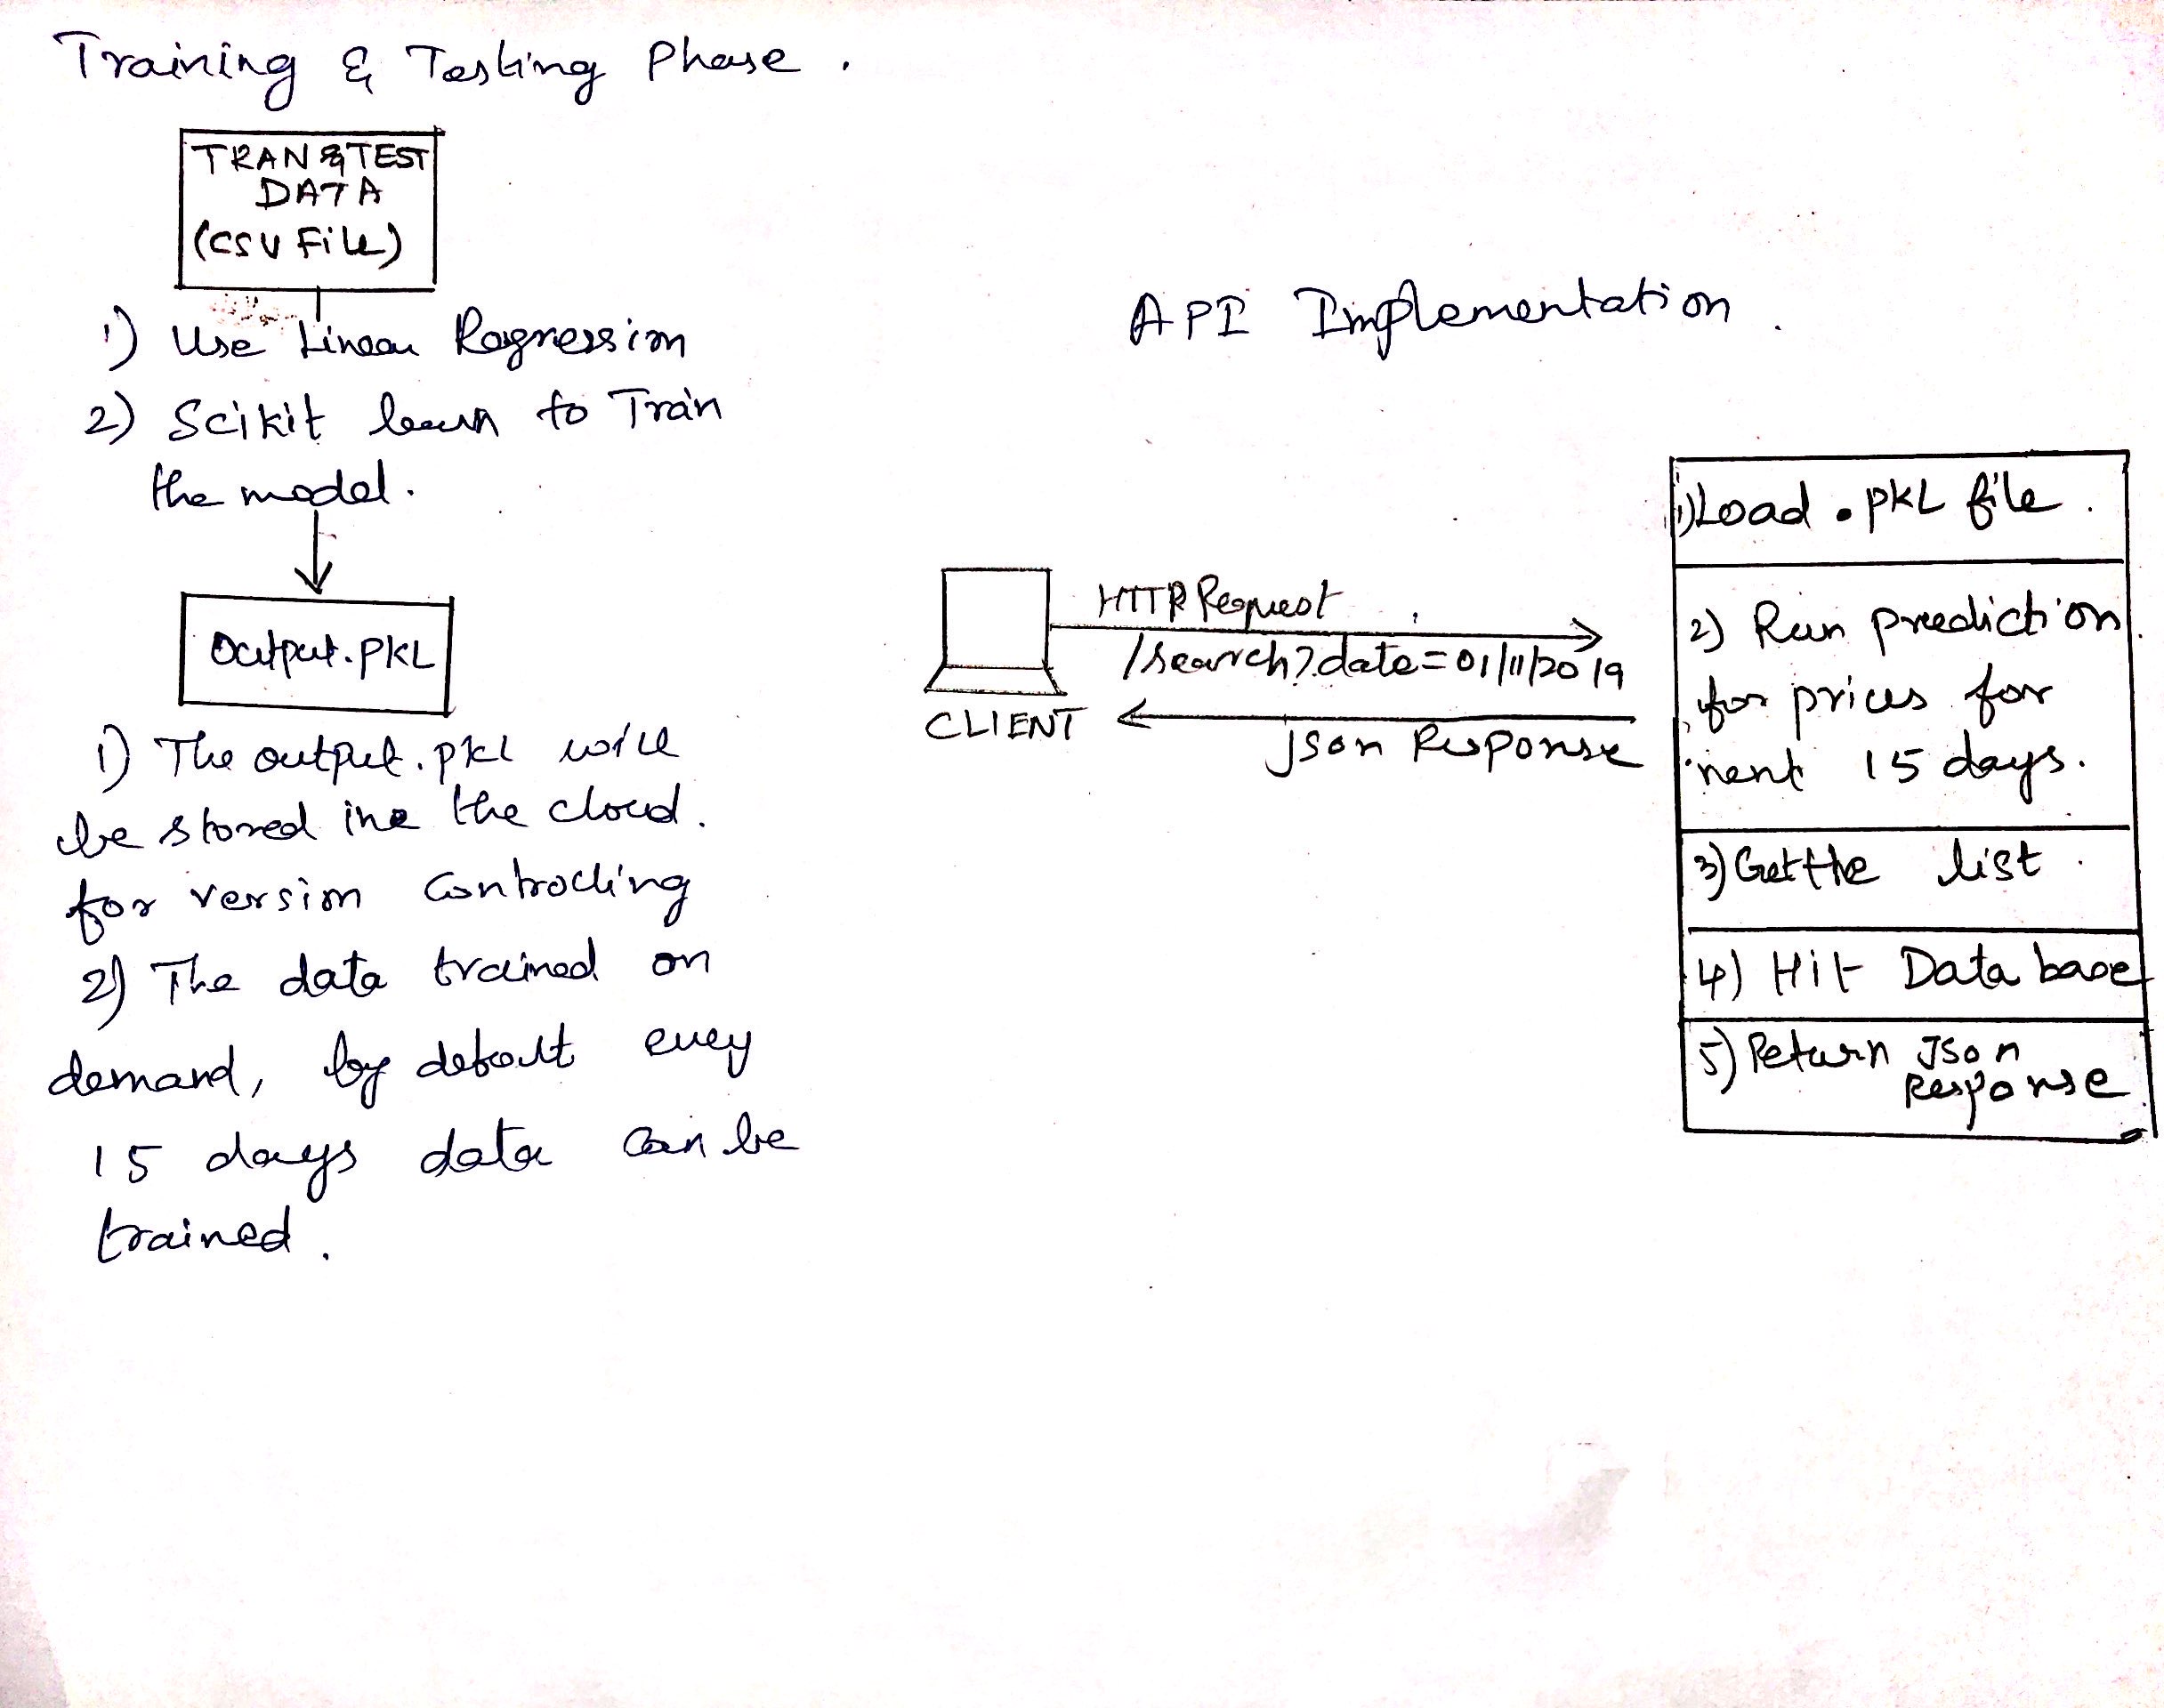 Training & Testing Phase.
TRAN & TEST
DATA
(CSV File)
1) Use Linear Regression
2) Scikit learn to Train
the model.
Output.PKL
1) The output.pkl will
be stored in the cloud.
for version controlling
2) The data trained on
demand, by default every
15 days data can be
trained.
API Implementation.
HTTP Request
/search?date=01/11/2019
CLIENT
json Response
1) Load .pkL file.
2) Run prediction
for prices for
next 15 days.
3) Get the list.
4) Hit Data base
5) Return Json
Response